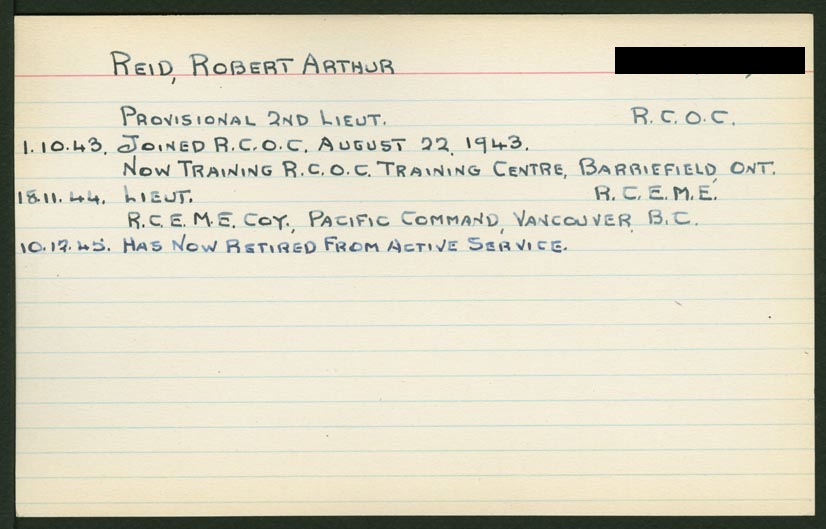 REID, ROBERT ARTHUR
PROVISIONAL 2ND LIEUT. R.C.O.C.
1.10.43. JOINED R.C.O.C. AUGUST 22, 1943.
NOW TRAINING R.C.O.C. TRAINING CENTRE, BARRIEFIELD, ONT.
18.11.44. LIEUT. R.C.E.M.E.
R.C.E.M.E. COY., PACIFIC COMMAND, VANCOUVER, B.C.
10.12.45. HAS NOW RETIRED FROM ACTIVE SERVICE.